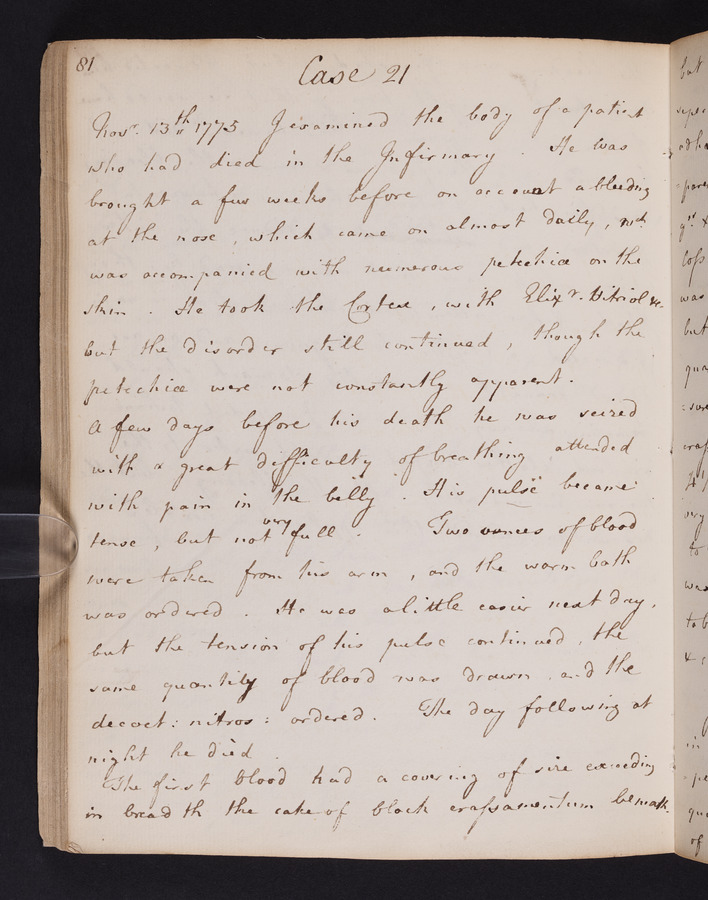 81
Case 21
Novr. 13th 1775 I examined the body of a patient
who had died in the Infirmary. He was
brought a few weeks before on account a bleeding
at the nose, which came on almost daily, wch
was accompanied with numerous petechiæ on the
skin. He took the Cortex, with Elixr. Vitriol &c.
but the disorder still continued, though the
petechiæ were not constantly apparent.
A few days before his death he was seized
with a great difficulty of breathing attended
with pain in the belly. His pulse became
tense, but not very full. Two ounces of blood
were taken from his arm, and the warm bath
was ordered. He was a little easier next day,
but the tension of his pulse continued, the
same quantity of blood was drawn and the
decoct: nitros: ordered. The day following at
night he died.
The first blood had a covering of size exceeding
in breadth the cake of black crassamentum
but
was
but
was
to
of